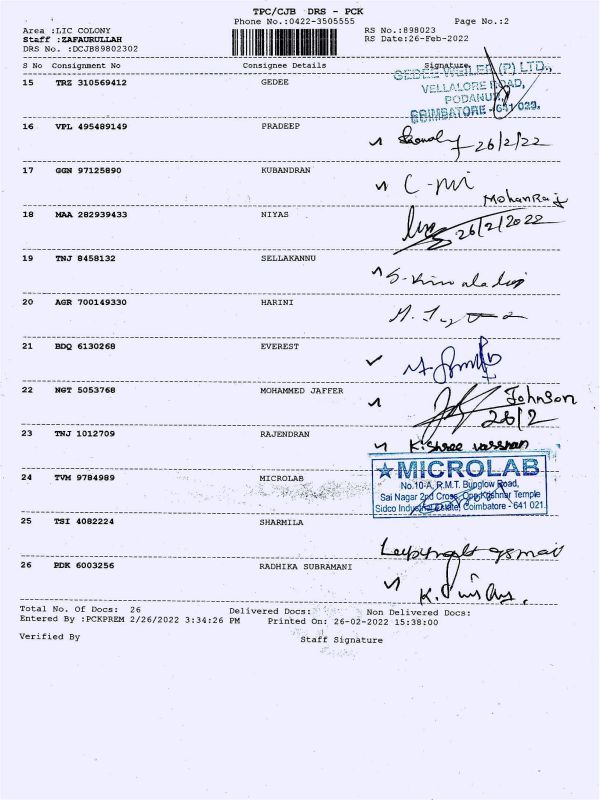 TPC/CJB DRS - PCK
Phone No.:0422-3505555 Page No.:2
Area :LIC COLONY RS No.:898023
Staff :ZAFAURULLAH RS Date:26-Feb-2022
DRS No. :DCJB89802302
S No Consignment No Consignee Details Signature
15 TRZ 310569412 GEDEE
GEDEE WEILER (P) LTD.,
VELLALORE ROAD,
PODANUR,
COIMBATORE - 641 023.
16 VPL 495489149 PRADEEP
26/2/22
17 GGN 97125890 KUBANDRAN
MohanRaj
18 MAA 282939433 NIYAS
26/2/2022
19 TNJ 8458132 SELLAKANNU
20 AGR 700149330 HARINI
21 BDQ 6130268 EVEREST
22 NGT 5053768 MOHAMMED JAFFER
Johnson
26/2
23 TNJ 1012709 RAJENDRAN
K. Shree
24 TVM 9784989 MICROLAB
MICROLAB
No.10-A, R.M.T. Bunglow Road,
Sai Nagar 2nd Cross, Opp.Krishnar Temple
Sidco Industrial Estate, Coimbatore - 641 021.
25 TSI 4082224 SHARMILA
26 PDK 6003256 RADHIKA SUBRAMANI
Total No. Of Docs: 26 Delivered Docs: Non Delivered Docs:
Entered By :PCKPREM 2/26/2022 3:34:26 PM Printed On: 26-02-2022 15:38:00
Verified By Staff Signature